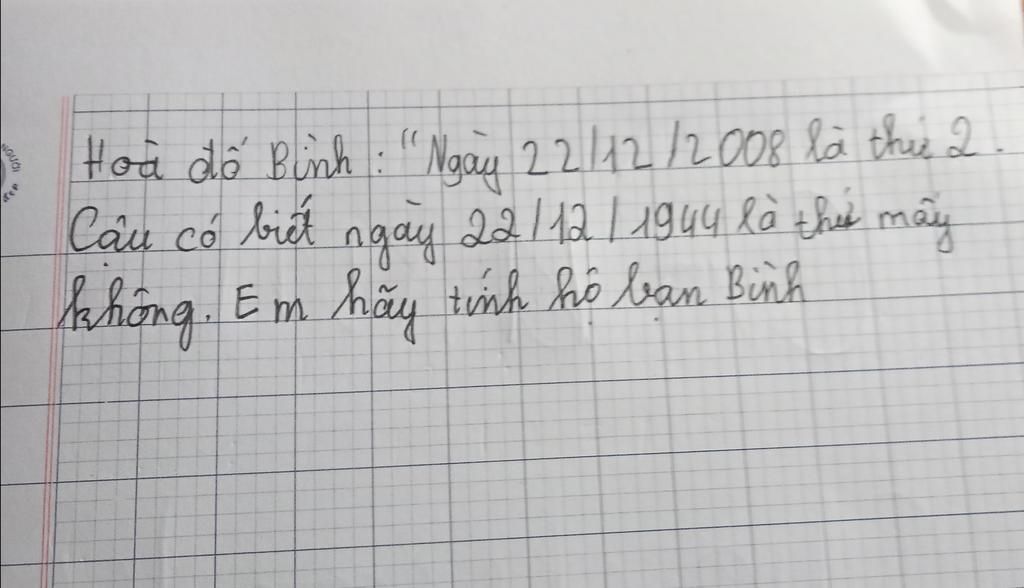 Hoà đố Bình : "Ngày 22/12/2008 là thứ 2.
Cậu có biết ngày 22/12/1944 là thứ mấy
không. Em hãy tính hộ bạn Bình
NGƯỜI